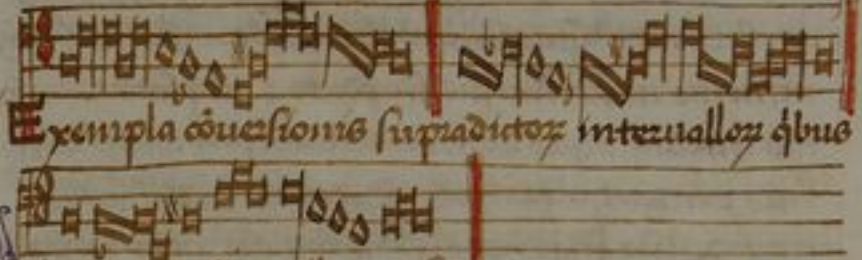 Exempla cõuersionis supradictoꝝ interuallorꝝ q̇bus